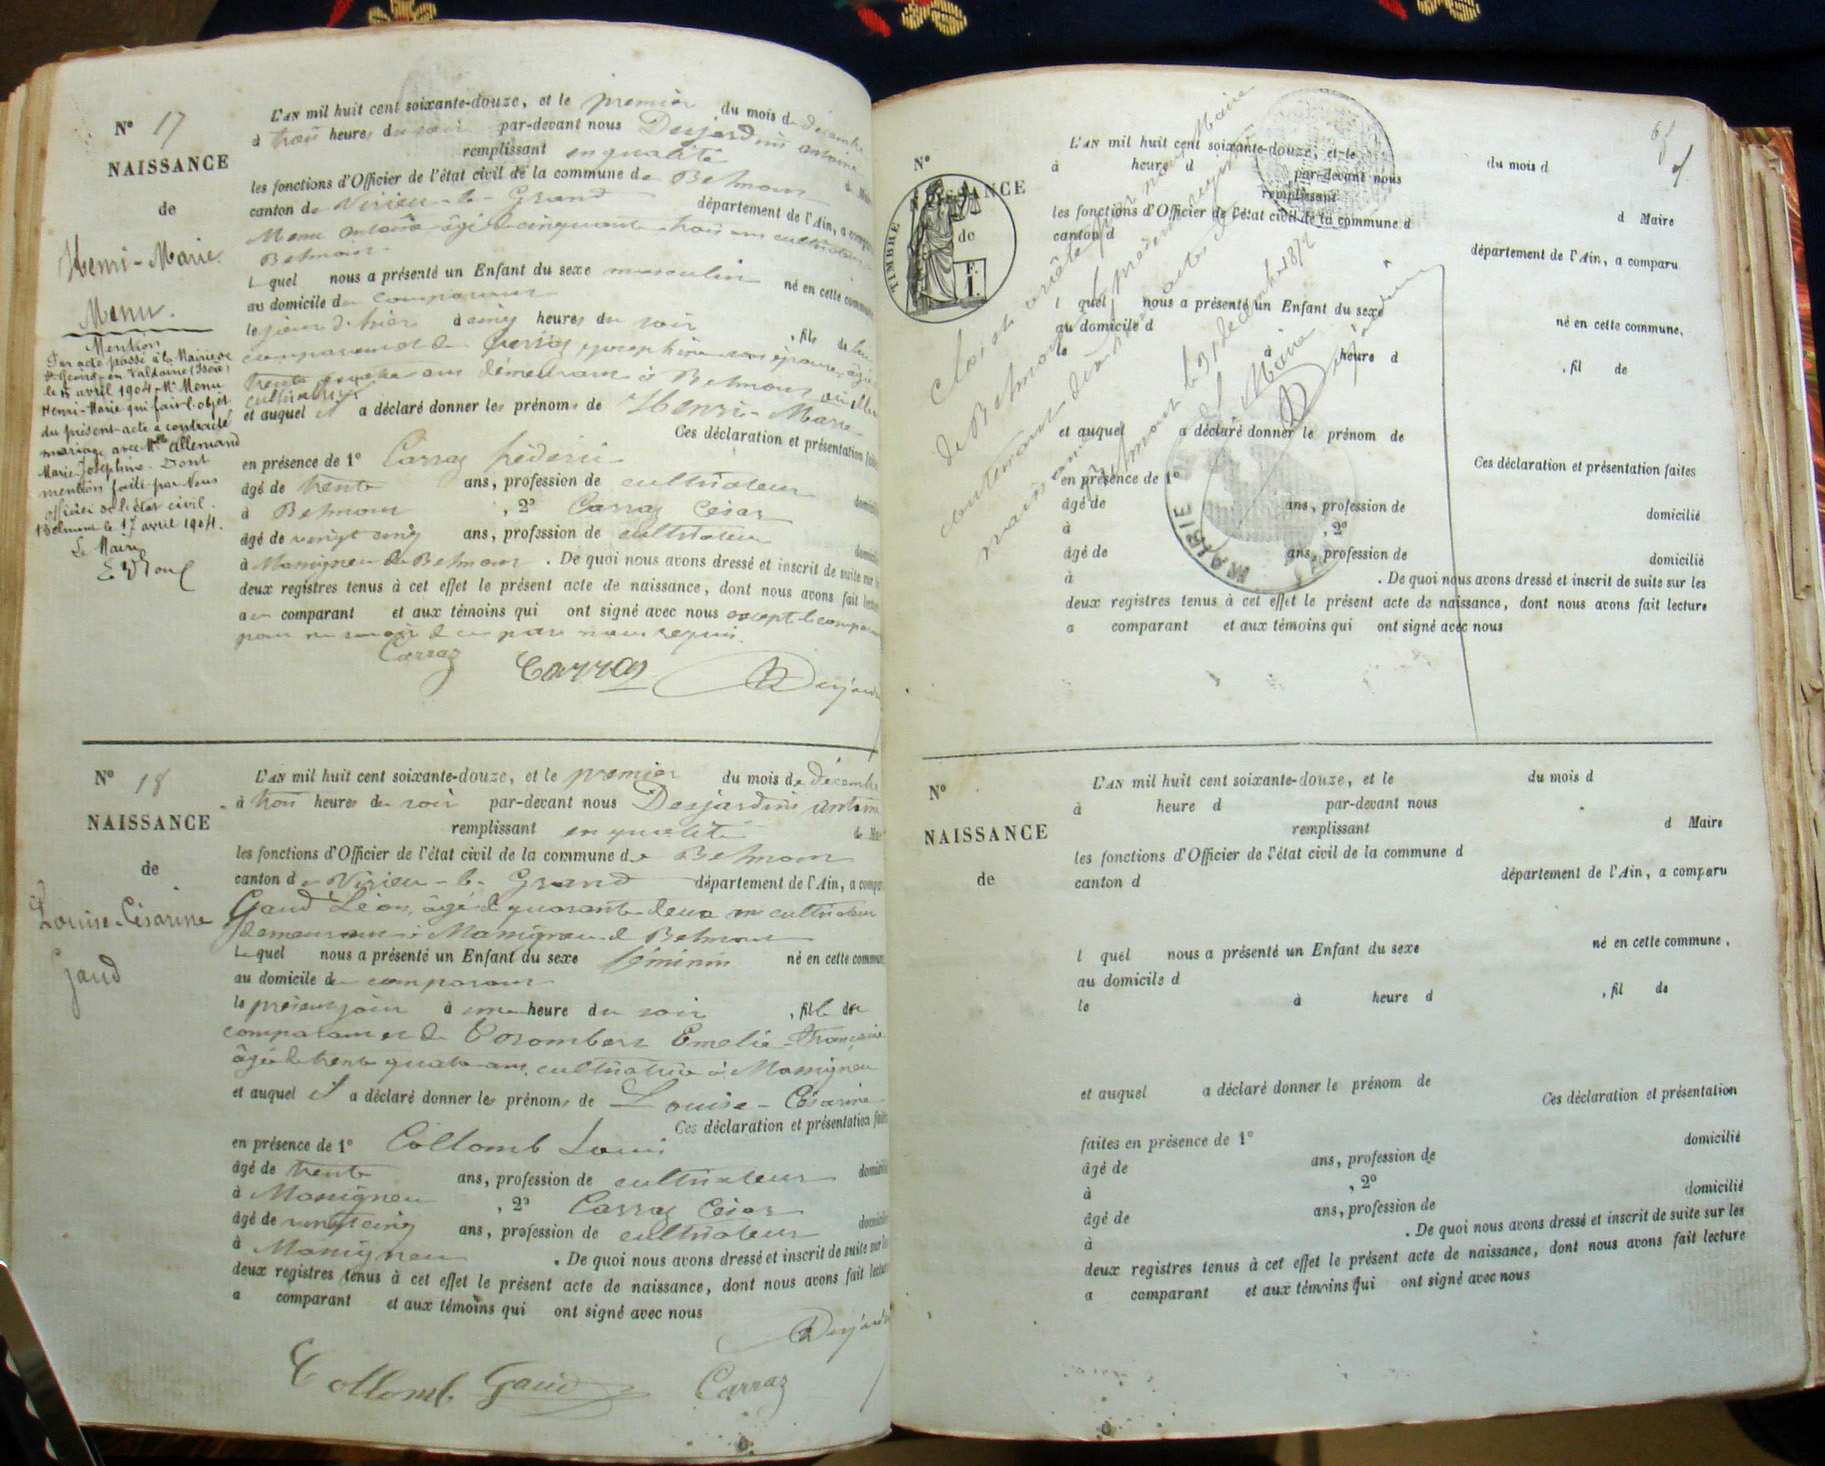 N° 17
NAISSANCE
de
Henri-Marie
Menu.
Mention
Par acte passé à la Mairie de
St Geoirs-en Valdaine (Isère)
le 15 avril 1904. Mr Menu
Henri-Marie qui fait l'objet
du présent acte a contracté
mariage avec Mlle Allemand
Marie Joséphine. Dont
mention faite par Nous
officier de l'état civil.
Belmont le 17 avril 1904.
Le Maire
L'AN mil huit cent soixante-douze, et le premier du mois de décembre
à trois heures du soir par-devant nous Desjardins antoine
remplissant en qualité de Maire
les fonctions d'Officier de l'état civil de la commune de Belmont
canton de Virieu-le-Grand département de l'Ain, a comparu
Menu antoine âgé de cinquante trois ans cultivateur à
Belmont
lequel nous a présenté un Enfant du sexe masculin né en cette commune
au domicile du comparant
le jour d'hier à cinq heures du soir, fils de lui
comparant et de Joséphine son épouse, âgée
trente quatre ans demeurant à Belmont où elle
cultivatrice
et auquel il a déclaré donner les prénoms de Henri-Marie
Ces déclaration et présentation faites
en présence de 1° Carraz fréderic
âgé de trente ans, profession de cultivateur domicilié
à Belmont, 2° Carraz César
âgé de vingt cinq ans, profession de cultivateur domicilié
à Massigneu de Belmont. De quoi nous avons dressé et inscrit de suite sur les
deux registres tenus à cet effet le présent acte de naissance, dont nous avons fait lecture
au comparant et aux témoins qui ont signé avec nous excepté le comparant
pour ne savoir de ce par nous requis.
Carraz Carraz Desjardins
N° 18
NAISSANCE
de
Louise-Césarine
Gaud
L'AN mil huit cent soixante-douze, et le premier du mois de décembre
à trois heures du soir par-devant nous Desjardins antoine
remplissant en qualité de Maire
les fonctions d'Officier de l'état civil de la commune de Belmont
canton de Virieu-le-Grand département de l'Ain, a comparu
Gaud Léon, âgé de quarante deux ans cultivateur
demeurant à Massigneu de Belmont
Lequel nous a présenté un Enfant du sexe féminin né en cette commune
au domicile du comparant
le présent jour à une heure du soir, fille du
comparant et de Emelie-Françoise
âgée de trente quatre ans, cultivatrice à Massigneu
et auquel il a déclaré donner les prénoms de Louise-Césarine
Ces déclaration et présentation faites
en présence de 1° Collomb Louis
âgé de trente ans, profession de cultivateur domicilié
à Massigneu, 2° Carraz César
âgé de vingt cinq ans, profession de cultivateur domicilié
à Massigneu. De quoi nous avons dressé et inscrit de suite sur les
deux registres tenus à cet effet le présent acte de naissance, dont nous avons fait lecture
a comparant et aux témoins qui ont signé avec nous
Desjardins
Collomb Gaud Carraz
N°
NAISSANCE
de
TIMBRE
F. I.
L'AN mil huit cent soixante-douze, et le du mois d
à heure d par-devant nous
remplissant d Maire
les fonctions d'Officier de l'état civil de la commune d
canton d département de l'Ain, a comparu
l quel nous a présenté un Enfant du sexe
au domicile d né en cette commune,
le à heure d, fil de
et auquel a déclaré donner le prénom de
Ces déclaration et présentation faites
en présence de 1°
âgé de ans, profession de domicilié
à, 2°
âgé de ans, profession de domicilié
à. De quoi nous avons dressé et inscrit de suite sur les
deux registres tenus à cet effet le présent acte de naissance, dont nous avons fait lecture
a comparant et aux témoins qui ont signé avec nous
Clos et arrêté par nous Maire
de Belmont le présent registre
contenant dix huit actes de
Belmont le 31 décembre 1872
Le Maire
Desjardins
MAIRIE
N°
NAISSANCE
de
L'AN mil huit cent soixante-douze, et le du mois d
à heure d par-devant nous
remplissant d Maire
les fonctions d'Officier de l'état civil de la commune d
canton d département de l'Ain, a comparu
l quel nous a présenté un Enfant du sexe né en cette commune,
au domicile d
le à heure d, fil de
et auquel a déclaré donner le prénom de
Ces déclaration et présentation
faites en présence de 1° domicilié
âgé de ans, profession de
à, 2° domicilié
âgé de ans, profession de
à. De quoi nous avons dressé et inscrit de suite sur les
deux registres tenus à cet effet le présent acte de naissance, dont nous avons fait lecture
a comparant et aux témoins qui ont signé avec nous